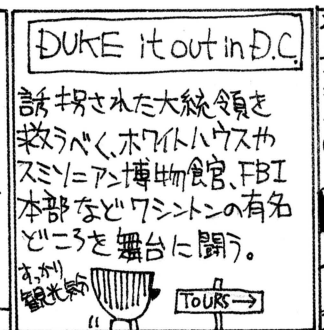 DUKE it out in D.C.
誘拐された大統領を
救うべく、ホワイトハウスや
スミソニアン博物館、FBI
本部などワシントンの有名
どころを舞台に闘う。
すっかり
観光気分
TOURS→